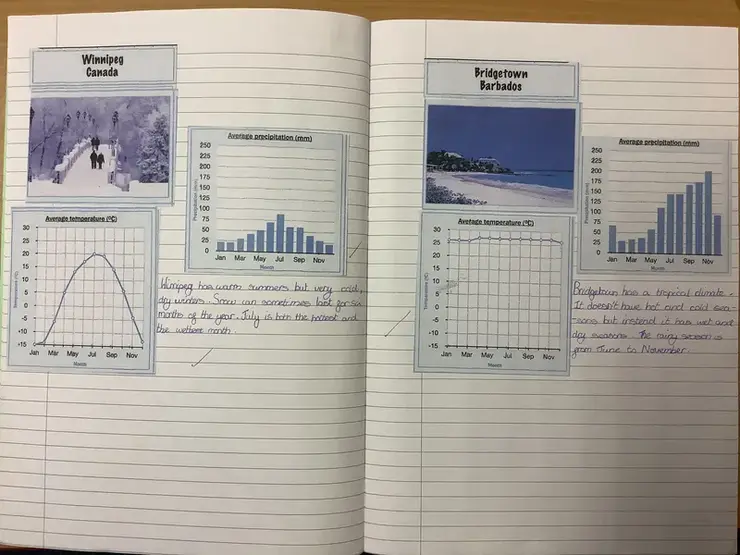 Winnipeg
Canada
Average precipitation (mm)
250
225
200
175
150
125
100
75
50
25
0
Precipitation (mm)
Jan Mar May Jul Sep Nov
Month
Average temperature (ºC)
30
25
20
15
10
5
0
-5
-10
-15
Temperature (ºC)
Jan Mar May Jul Sep Nov
Month
Winnipeg has warm summers but very cold,
dry winters. Snow can sometimes last for six
months of the year. July is both the hottest and
the wettest month.
Bridgetown
Barbados
Average precipitation (mm)
250
225
200
175
150
125
100
75
50
25
0
Precipitation (mm)
Jan Mar May Jul Sep Nov
Month
Average temperature (ºC)
30
25
20
15
10
5
0
-5
-10
-15
Temperature (ºC)
Jan Mar May Jul Sep Nov
Month
Bridgetown has a tropical climate.
It doesn't have hot and cold sea-
-sons but instead it has wet and
dry seasons. The rainy season is
from June to November.